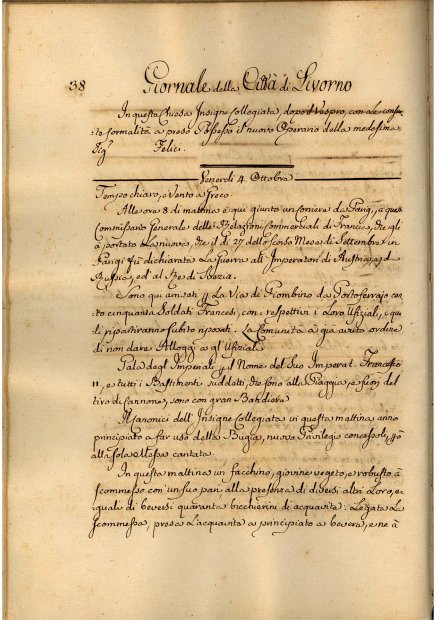 38 Giornale della Città di Livorno
In questa Chiesa Insigne Collegiata, dopo il Vespro, con le consue-
te formalità a preso Possesso il nuovo Operario della medesima
Sig.r Felici.
Venerdi 4. Ottobre
Tempo chiaro, e Vento a Greco.
Alle ore 8 di mattina è qui giunto un Corriere da Parigi, a questo
Commissario Generale delle Relazioni Commerciali di Francia, che gli
à portato la nuova, che il dì 27 dello scorso Mese di Settembre in
Parigi fu dichiarata la Guerra all' Imperatori di Austria, e di
Russia, ed al Re di Svezia.
Sono qui arrivati p. la Via di Piombino da Portoferrajo cen-
to cinquanta Soldati Francesi, con i respettivi Loro Ufiziali, i qua-
li ripartiranno subito riposati. La Comunità a già avuto ordine
di non dare Alloggi a gl' Ufiziali
Gala degl' Imperiali p. il Nome del Suo Imperat. Francesco
II, e tutti i Bastimenti suddetti, che sono alla Piaggia, e fuori del
tiro di Cannone, sono con gran Bandiera
I Canonici dell' Insigne Collegiata in questa mattina anno
principiato a far uso della Bugia, nuovo Privilegio concessoli, p.ò
alla sola Messa cantata.
In questa mattina un facchino, giovine vegeto, e robusto à
scommesso con un suo pari alla presenza di diversi altri Loro, e-
guali di beversi quaranta bicchierini di acquavita: Legata La
scommessa, presa L'acquavita a principiato a bevere, e ne à